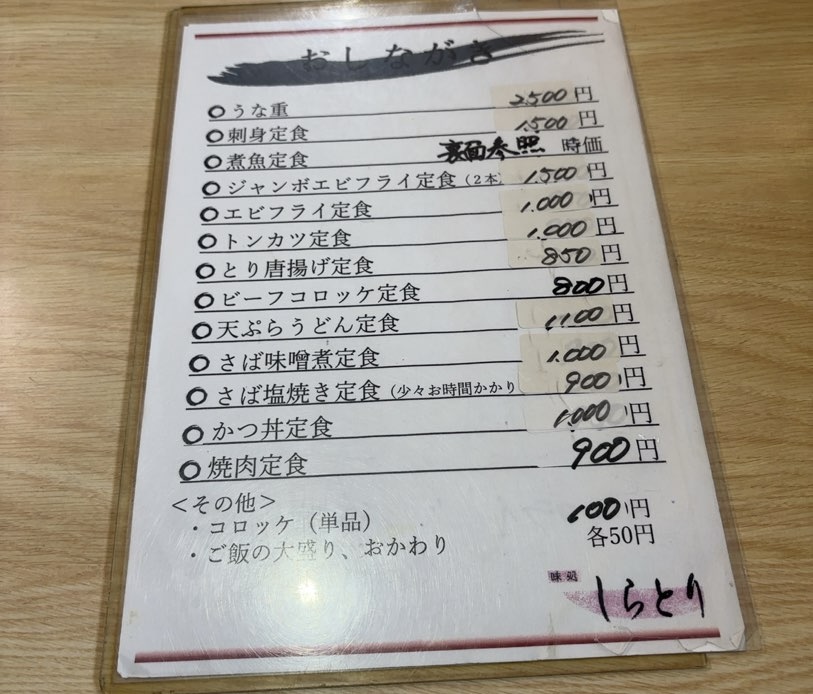 おしながき
○うな重 2,500円
○刺身定食 1,500円
○煮魚定食 裏面参照 時価
○ジャンボエビフライ定食（2本 1,500円
○エビフライ定食 1,000円
○トンカツ定食 1,000円
○とり唐揚げ定食 850円
○ビーフコロッケ定食 800円
○天ぷらうどん定食 1,100円
○さば味噌煮定食 1,000円
○さば塩焼き定食（少々お時間かかり 900円
○かつ丼定食 1,000円
○焼肉定食 900円
＜その他＞
・コロッケ（単品） 100円
・ご飯の大盛り、おかわり 各50円
味処
しらとり